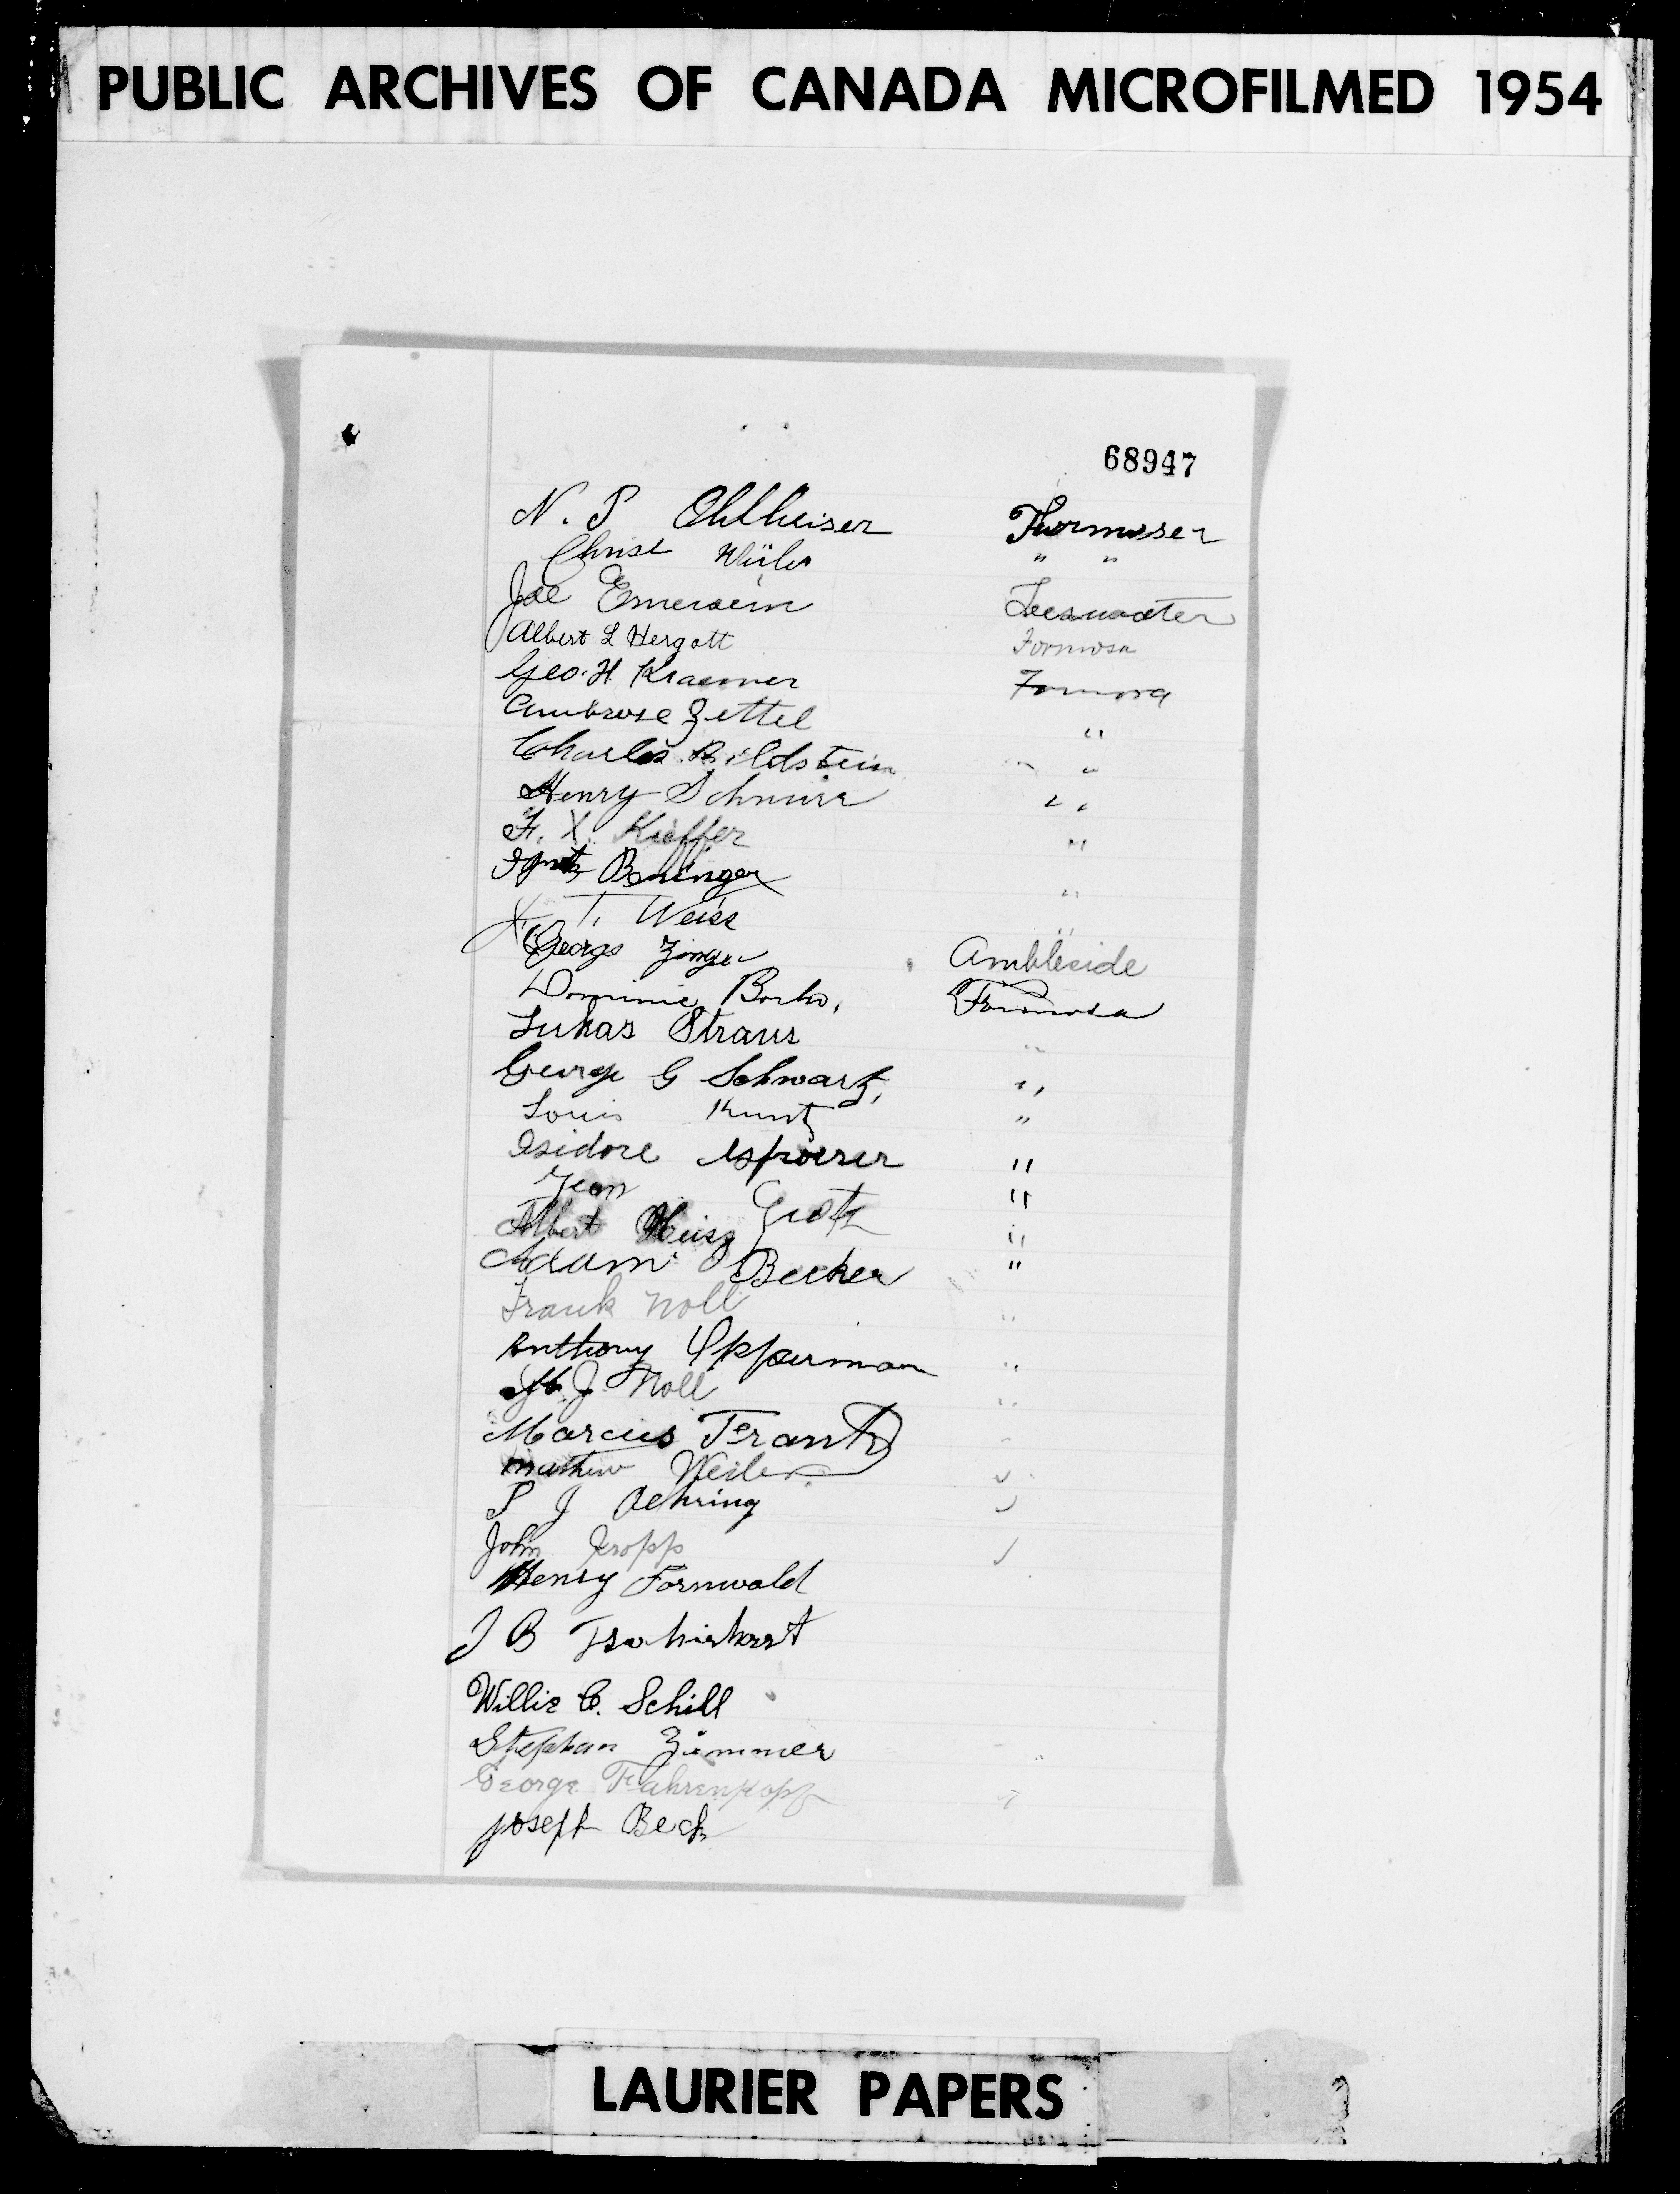 PUBLIC ARCHIVES OF CANADA MICROFILMED 1954
68947
N. P Ohlheiser
Christ " "
Joe Teeswater
Albert L Hergott Formosa
Geo. H. Kraemer Formosa
Ambrose Zettel "
Charles Bildstein "
Henry Schnurr "
F. X. Kieffer "
Beninger "
T. Weiss "
George Zinger Ambleside
Dominic Formosa
Lukas Straus "
George G Schwartz, "
Louis Kuntz "
Isidore "
Jean Goetz "
Albert Heisz "
Adam Becker "
Frank Noll "
Anthony Opperman "
J. Noll "
Marcus Frantz "
Mathew Weiler "
P J Oehring "
John Kropp "
Henry Fornwald
J B Tschirhart
Willie C. Schill
Stephan Zimmer
George Fahrenkopf "
Joseph Beck
LAURIER PAPERS